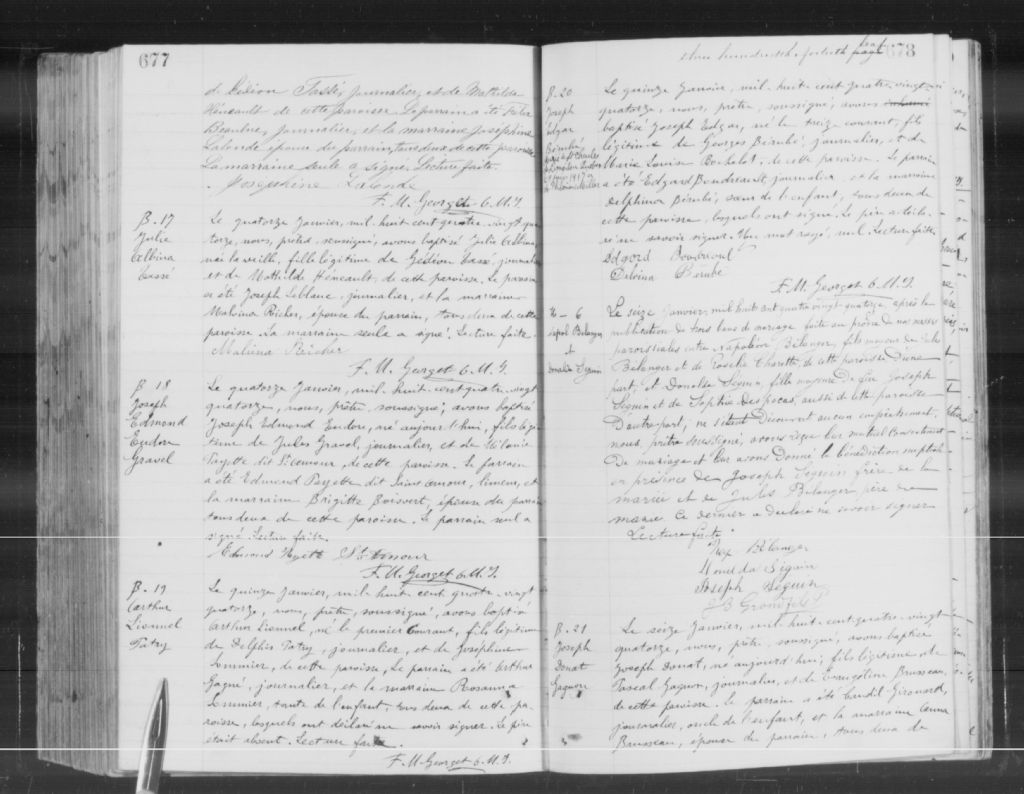 677
de Gédéon Tassé, journalier, et de Mathilde
Héneault de cette paroisse. Le parrain a été
Beaudre, journalier, et la marraine Joséphine
Lalonde épouse du parrain, tous deux de cette paroisse
La marraine seule a signé. Lecture faite.
Josephine Lalonde
F. M. Georget C. M. I.
B. 17
Julie
Albina
Tassé
Le quatorze Janvier, mil huit cent quatre-vingt qua
torze, nous, prêtre soussigné, avons baptisé Julie Albina,
née la veille, fille légitime de Gédéon Tassé, journalier
et de Mathilde Héneault, de cette paroisse. Le parrain
a été Joseph Leblanc, journalier, et la marraine
Malvina Richer, épouse du parrain, tous deux de cette
paroisse. La marraine seule a signé. Lecture faite.
Malvina Richer
F. M. Georget C. M. I.
B 18
Joseph
Edmond
Eudore
Gravel
Le quatorze Janvier, mil huit cent quatre-vingt
quatorze, nous, prêtre, soussigné, avons baptisé
Joseph Edmond Eudore, né aujourd'hui, fils légi
time de Jules Gravel, journalier, et de Mélanie
Payette dit St Amour, de cette paroisse. Le parrain
a été Edmond Payette dit Saint Amour, et
la marraine Brigitte Boisvert, épouse du parrain
tous deux de cette paroisse. Le parrain seul a
signé. Lecture faite.
Edmond Payette St Amour
F. M. Georget C. M. I.
B. 19
Arthur
Lionnel
Patry
Le quinze Janvier, mil huit cent quatre-vingt
quatorze, nous, prêtre, soussigné, avons baptisé
Arthur Lionnel, né le premier courant, fils légitime
de Delphis Patry, journalier, et de Joséphine
Lemmier, de cette paroisse. Le parrain a été Arthur
Gagné, journalier, et la marraine Rosanna
Lemmier, tante de l'enfant, tous deux de cette pa-
roisse, lesquels ont déclaré ne savoir signer. Le père
était absent. Lecture faite.
F. M. Georget C. M. I.
three hundredth fortieth leaf 678
B. 20
Joseph
Edgar
Bérubé
Le quinze Janvier, mil huit cent quatre-vingt-
quatorze, nous, prêtre, soussigné, avons
baptisé Joseph Edgar, né le treize courant, fils
légitime de Georges Bérubé, journalier, et de
Marie Louise de cette paroisse. Le parrain
a été Edgard Boudreault, journalier, et la marraine
Delphina Bérubé, sœur de l'enfant, tous deux de
cette paroisse, lesquels ont signé. Le père a décla-
ré ne savoir signer. Un mot rayé, nul. Lecture faite.
Edgard Boudriault
Delvina Berube
F. M. Georget C. M. I.
M - 6
Napol Bélanger
+
Donalda Seguin
Le seize Janvier, mil huit cent quatre vingt quatorze, après la
publication de trois bans de mariage faite au prône de nos messes
paroissiales entre Napoléon Bélanger, fils majeur de Jules
Bélanger et de Rosalie Charette, de cette paroisse D'une
part; et Donalda Séguin, fille majeure De feu Joseph
Séguin et de Sophie aussi de cette paroisse
D'autre part; ne s'étant Découvert aucun empêchement,
nous, prêtre soussigné, avons reçu leur mutuel consentement
De mariage et leur avons Donné la bénédiction nuptiale
en présence de Joseph Seguin frère de la
mariée et de Jules Bélanger père du
marié. Ce dernier a Déclaré ne savoir signer
Lecture faite
Nap Bélanger
Donalda Séguin
Joseph Seguin
B. 21
Joseph
Donat
Gagnon
Le seize Janvier, mil huit cent quatre-vingt
quatorze, nous, prêtre, soussigné, avons baptisé
Joseph Donat, né aujourd'hui, fils légitime de
Pascal Gagnon, journalier, et de Brusseau,
de cette paroisse. Le parrain a été Girouard,
journalier, oncle de l'enfant, et la marraine Anna
Brusseau, épouse du parrain, tous deux de